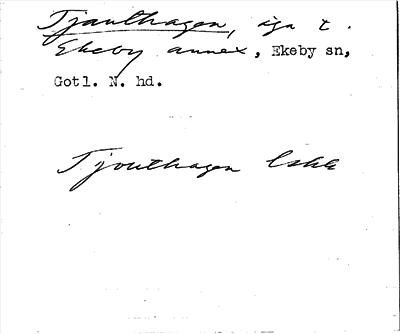 Tjauthagen, äga t.
Ekeby annex, Ekeby sn,
Gotl. N. hd.
Tjouthagen